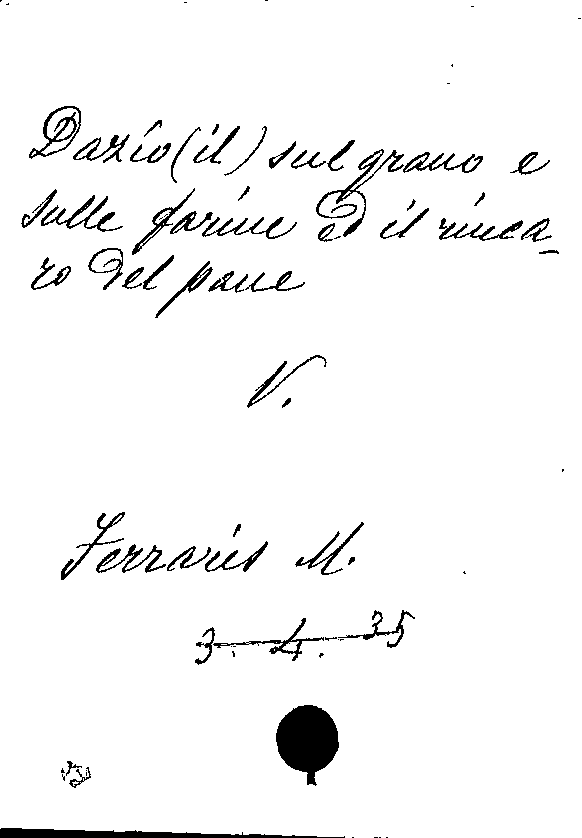 Dazio (il) sul grano e
sulle farine ed il rinca-
ro del pane
V.
Ferraris M.
3. 4. 35